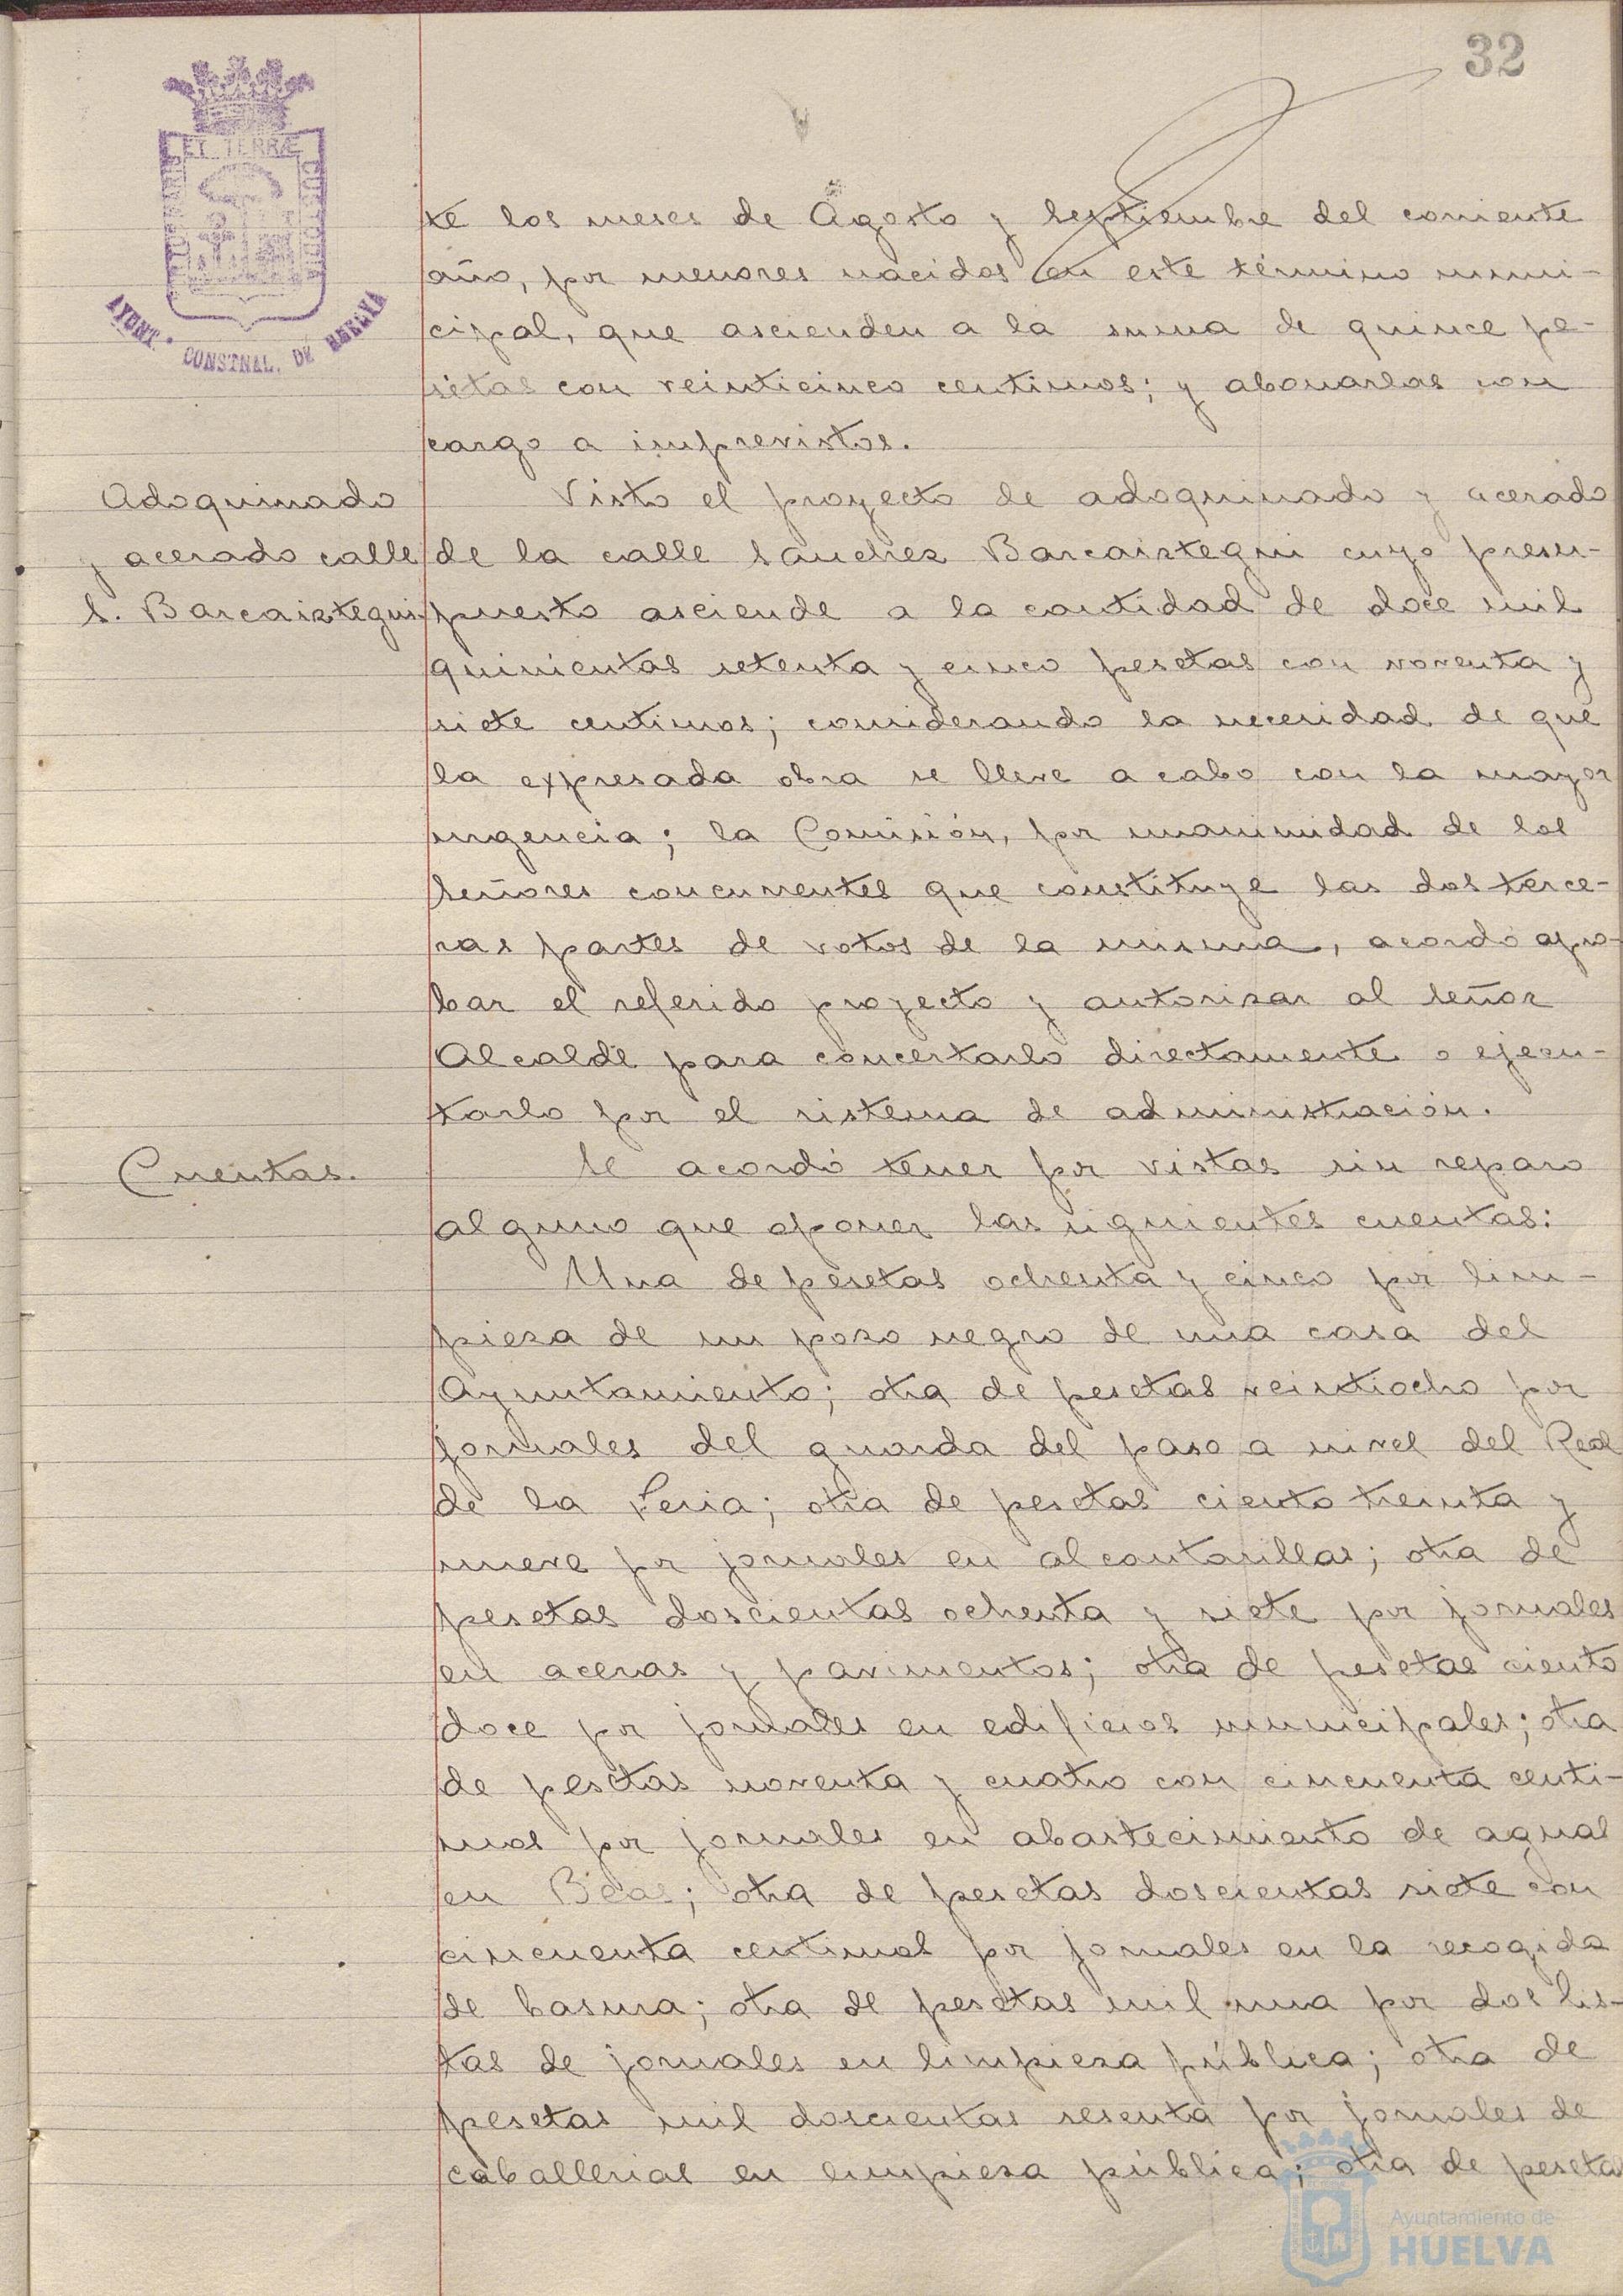 32
PORTUS MARIS
ET TERRÆ
CUSTODIA
AYONT. CONSTNAL. DE HUELVA
te los meses de Agosto y Septiembre del corriente
año, por menores nacidos en este término muni-
cipal, que ascienden a la suma de quince pe-
setas con veinticinco centimos; y abonarlas con
cargo a imprevistos.
Adoquinado
y acerado calle
S. Barcaiztegui
Visto el proyecto de adoquinado y acerado
de la calle Sanchez Barcaiztegui cuyo presu-
puesto asciende a la cantidad de doce mil
quinientas setenta y cinco pesetas con noventa y
siete centimos; considerando la necesidad de que
la expresada obra se lleve a cabo con la mayor
urgencia; la Comisión, por unanimidad de los
Señores concurrentes que constituye las dos terce-
ras partes de votos de la misma, acordó apro-
bar el referido proyecto y autorizar al Señor
Alcalde para concertarlo directamente o ejecu-
tarlo por el sistema de administración.
Cuentas.
Se acordó tener por vistas sin reparo
alguno que oponer las siguientes cuentas:
Una de pesetas ochenta y cinco por lim-
pieza de un pozo negro de una casa del
Ayuntamiento; otra de pesetas veintiocho por
jornales del guarda del paso a nivel del Real
de la Feria; otra de pesetas ciento treinta y
nueve por jornales en alcantarillas; otra de
pesetas doscientas ochenta y siete por jornales
en aceras y pavimentos; otra de pesetas ciento
doce por jornales en edificios municipales; otra
de pesetas noventa y cuatro con cincuenta centi-
mos por jornales en abastecimiento de aguas
en Beas; otra de pesetas doscientas siete con
cincuenta centimos por jornales en la recogida
de basura; otra de pesetas mil una por dos lis-
tas de jornales en limpieza pública; otra de
pesetas mil doscientas sesenta por jornales de
caballerias en limpieza pública; otra de peseta
Ayuntamiento de
HUELVA